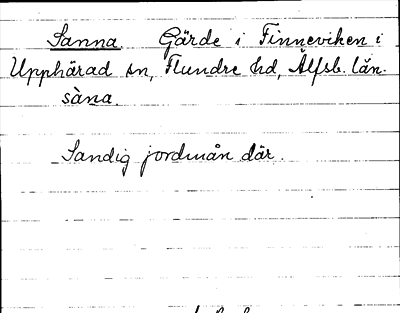 Sanna Gärde i Finneviken i
Upphärad sn, Flundre hd, Älfsb. län.
sàna.
Sandig jordmån där.